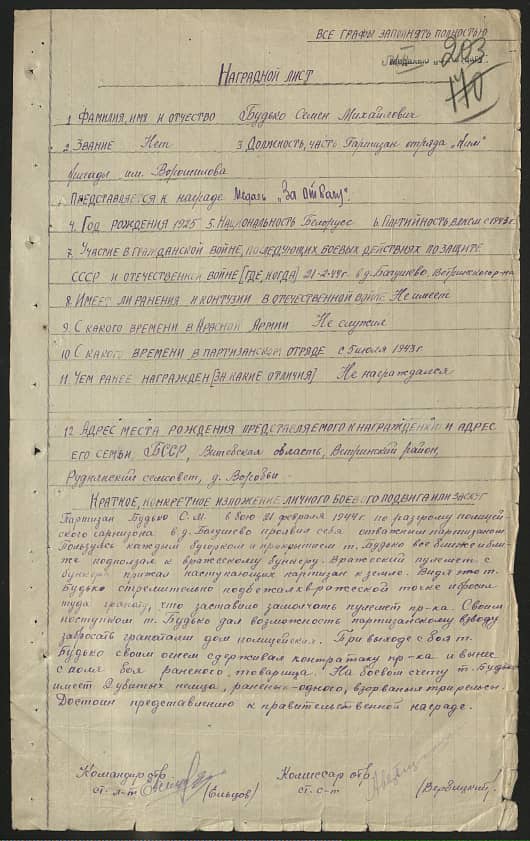 ВСЕ ГРАФЫ ЗАПОЛНЯТЬ ПОЛНОСТЬЮ
203
170
НАГРАДНОЙ ЛИСТ
1 ФАМИЛИЯ, ИМЯ И ОТЧЕСТВО Будько Семен Михайлович
2. ЗВАНИЕ Нет 3. ДОЛЖНОСТЬ, ЧАСТЬ Партизан отряда „Ким"
бригады им. Ворошилова
ПРЕДСТАВЛЯЕТСЯ К НАГРАДЕ Медаль „За отвагу".
4. ГОД РОЖДЕНИЯ 1925 5. НАЦИОНАЛЬНОСТЬ Белорус 6. ПАРТИЙНОСТЬ ВЛКСМ с 1943 г.
7. УЧАСТИЕ В ГРАЖДАНСКОЙ ВОЙНЕ, ПОСЛЕДУЮЩИХ БОЕВЫХ ДЕЙСТВИЯХ ПО ЗАЩИТЕ
СССР И ОТЕЧЕСТВЕННОЙ ВОЙНЕ [ГДЕ, КОГДА] 21-2-44г. в д. Богушево, Ветринского р-на
8. ИМЕЕТ ЛИ РАНЕНИЯ И КОНТУЗИИ В ОТЕЧЕСТВЕННОЙ ВОЙНЕ Не имеет
9. С КАКОГО ВРЕМЕНИ В КРАСНОЙ АРМИИ Не служил
10 С КАКОГО ВРЕМЕНИ В ПАРТИЗАНСКОМ ОТРЯДЕ с 5 июля 1943 г.
11 ЧЕМ РАНЕЕ НАГРАЖДЕН [ЗА КАКИЕ ОТЛИЧИЯ] Не награждался
12 АДРЕС МЕСТА РОЖДЕНИЯ ПРЕДСТАВЛЯЕМОГО К НАГРАЖДЕНИЮ И АДРЕС
ЕГО СЕМЬИ БССР, Витебская область, Ветринский район,
Руднянский сельсовет, д. Воробьи
КРАТКОЕ, КОНКРЕТНОЕ ИЗЛОЖЕНИЕ ЛИЧНОГО БОЕВОГО ПОДВИГА ИЛИ ЗАСЛУГ
Партизан Будько С.М. в бою 21 февраля 1944 г. по разгрому полицей
ского гарнизона в д. Богушево проявил себя отважным партизаном
Пользуясь каждым бугорком и прикрытием т. Будько все ближе и бли-
же подползал к вражескому бункеру. Вражеский пулемет с
бункера прижал наступающих партизан к земле. Видя это т.
Будько стремительно подбежал к вражеской точке и бросил
туда гранату, что заставило замолчать пулемет пр-ка. Своим
поступком т. Будько дал возможность партизанскому взводу
забросать гранатами дом полицейских. При выходе с боя т.
Будько своим огнем сдерживал контратаку пр-ка и вынес
с поля боя раненого товарища. На боевом счету т. Будько
имеет 2 убитых немца, раненых-одного, взорваных три рельсы.
Достоин представлению к правительственной награде.
Командир отр. Комиссар отр.
ст. л-т (Ельцов) ст. с-т (Вербицкий)